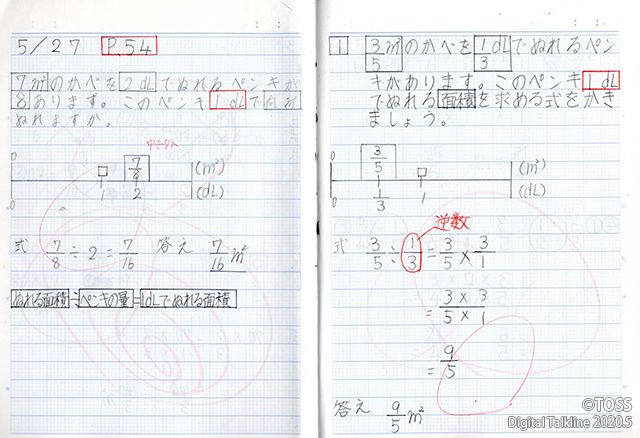 5/27 P.54
7/8 m²のかべを2dLでぬれるペンキが
あります。このペンキ1dLで何m²
ぬれますか。
0 □ 7/8 (m²)
0 1 2 (dL)
式 7/8÷2=7/16 答え 7/16 m²
ぬれる面積÷ペンキの量=1dLでぬれる面積
1 3/5 m²のかべを1/3 dLでぬれるペン
キがあります。このペンキ1dL
でぬれる面積を求める式をかき
ましょう。
0 3/5 □ (m²)
0 1/3 1 (dL)
逆数
式 3/5÷1/3=3/5×3/1
=3×3/5×1
=9/5
答え 9/5 m²
©TOSS
Digital Talkline 2020.5